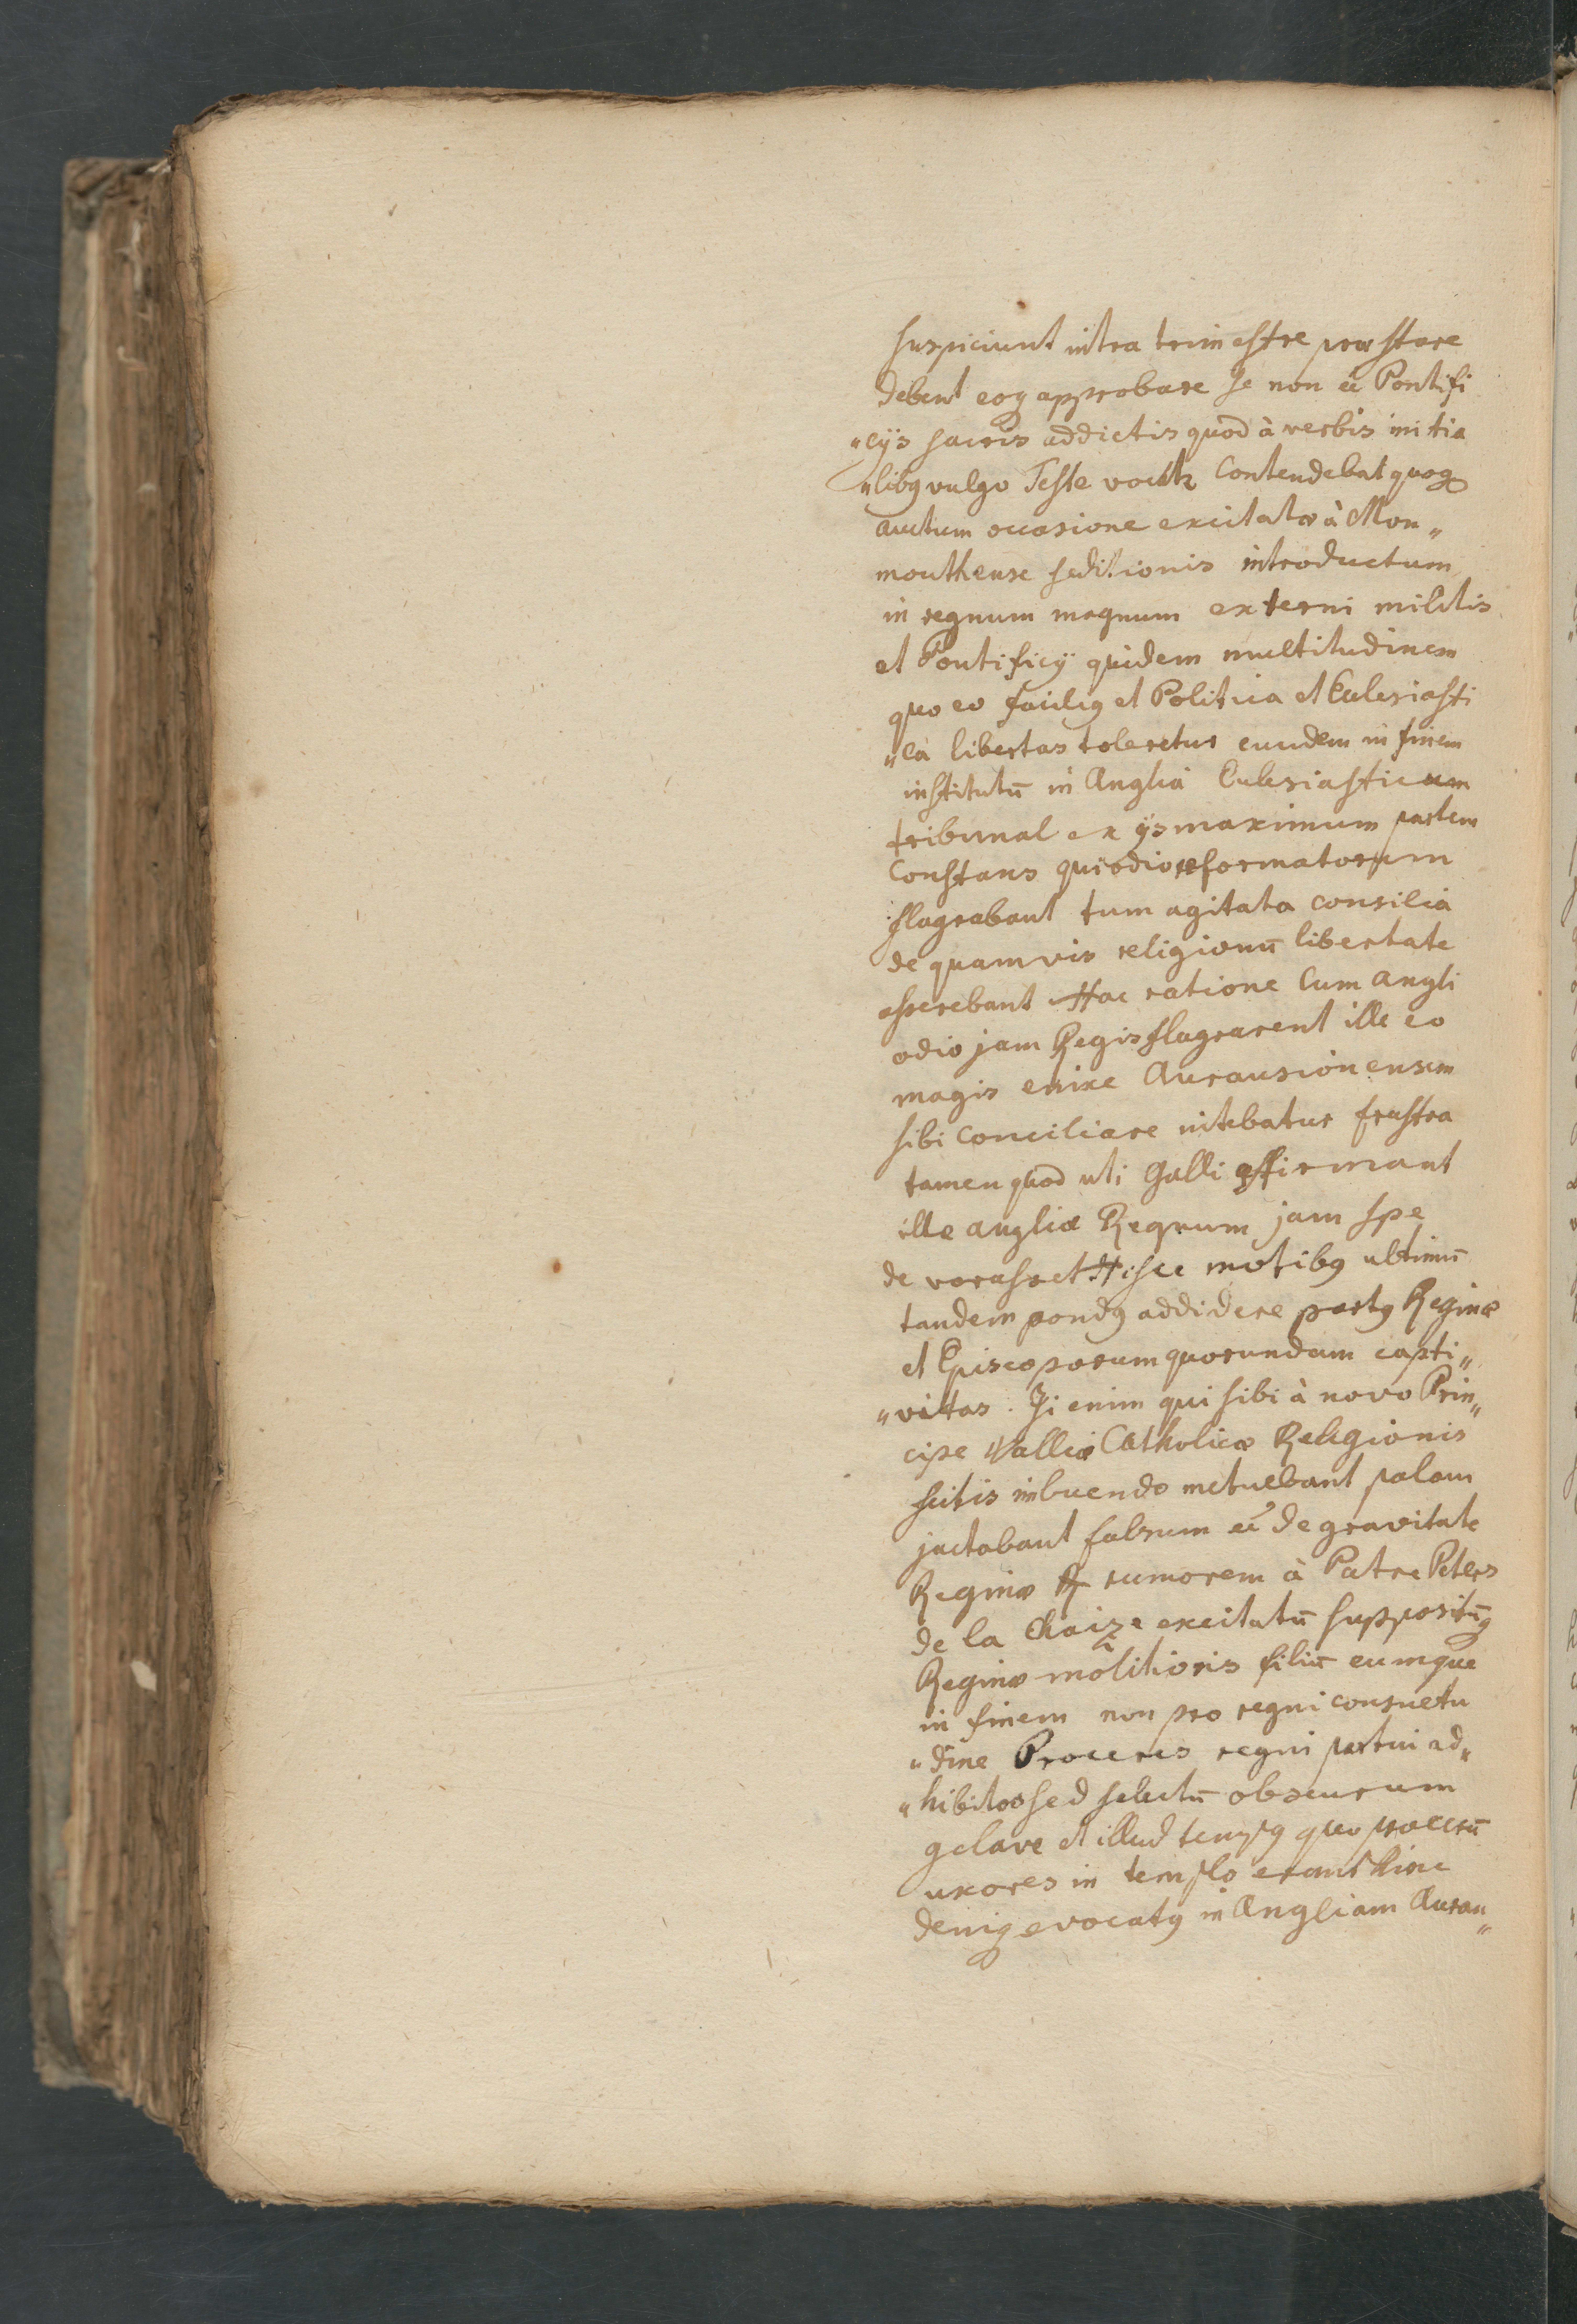 suspiciunt intra trimestre præstare
debent eoq approbare se non eē Pontifi
„cijs sacris addictis quod à verbis initia
„libq vulgo Teste vocatr Contendebat quoq
auctum occasione excitatæ à Mon„
mouthense seditionis introductum
in regnum magnum externi militis
et Pontificij quidem multitudinem
quo eo faciliq et Politica et Ecclesiasti
„ca libertas toleretur eundem in finem
institutū in Anglia Ecclesiasticum
tribunal ex ijs maximum partem
Constans qui odio reformatorum
flagrabant tum agitata consilia
de quamvis religionū libertate
asserebant Hac ratione Cum Angli
odio jam Regis flagrarent ille eo
magis enixe Aurausionensem
sibi conciliare nitebatur frustra
tamen quod uti Galli affirmant
ille angliæ Regnum jam spe
de vorasset Hisce motibq ultimū
tandem pondq addidere partq Reginæ
et Episcoporum quorundam capti„
„vitas. Ji enim qui sibi à novo Prin„
cipe Valliæ Catholicæ Religionis
scitis imbuendo metuebant palam
jactabant falsum eē de gravitate
Reginæ rumorem à Patre Peters
de la Chaize excitatū suppositūq
Reginæ molitioris filiū eumque
in finem non pro regni consuetu
„dine Proceres regni partui ad„
„hibitos sed selectū obscurum
qclave et illud tempq quo procerū
uxores in templo erant hinc
deniq evocatq in Angliam Auran„